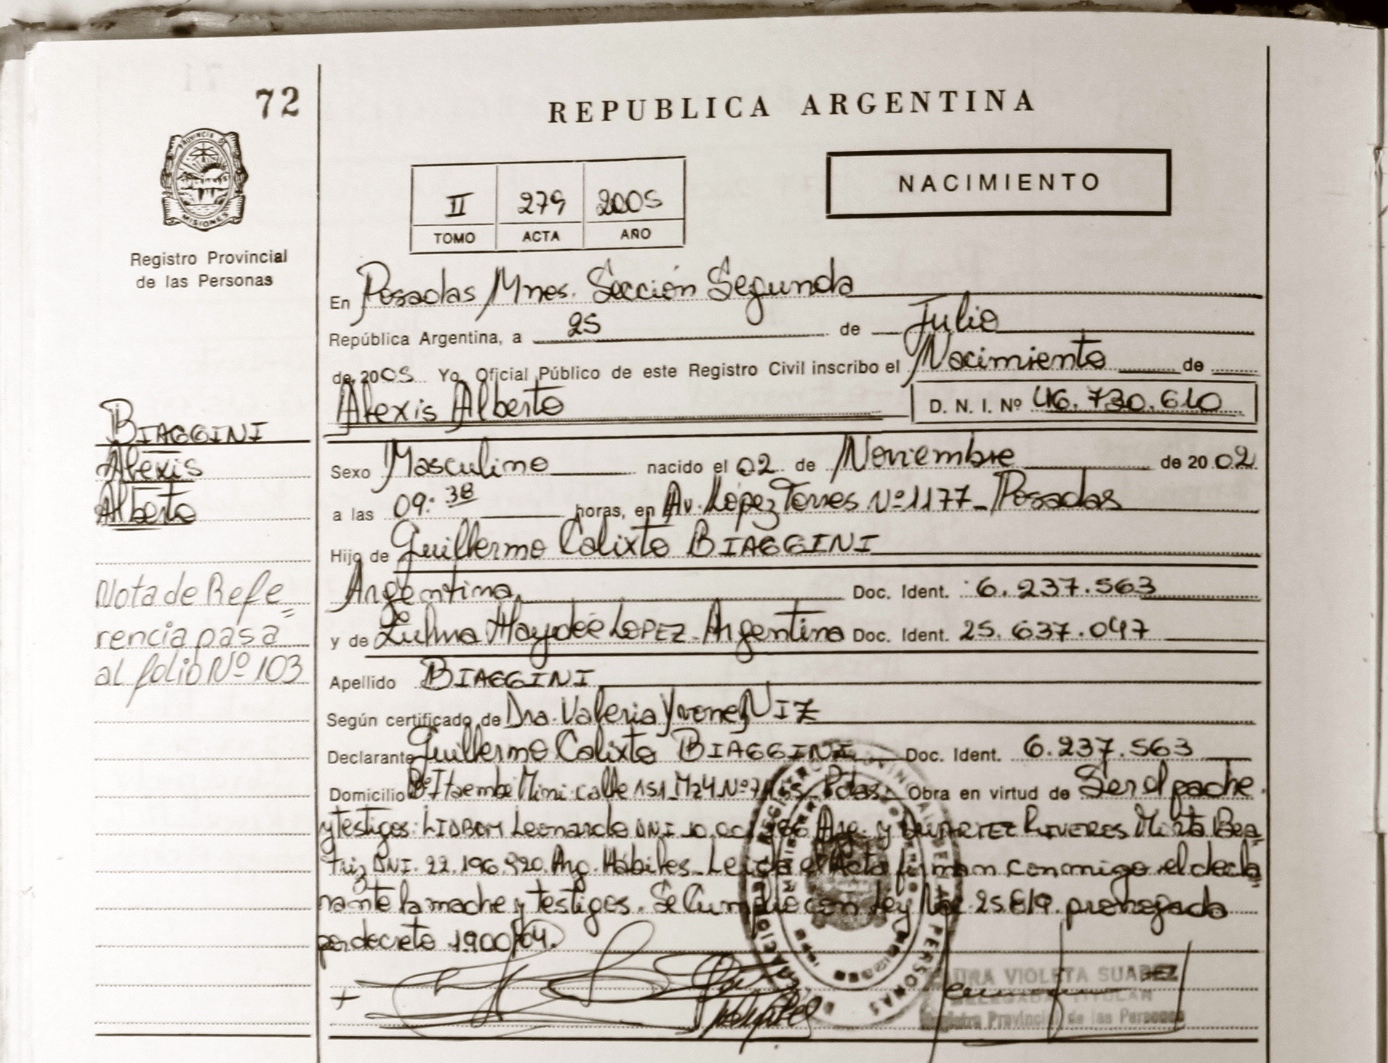 72
REPUBLICA ARGENTINA
PROVINCIA D
MISIONES
Registro Provincial
de las Personas
II 279 2005
TOMO ACTA AÑO
NACIMIENTO
En Posadas Mnes. Sección Segunda
República Argentina, a 25 de Julio
de 2005 Yo, Oficial Público de este Registro Civil inscribo el Nacimiento de
Alexis Alberto D. N. I. Nº 46.730.610
BIAGGINI
Alexis
Alberto
Sexo Masculino nacido el 02 de Noviembre de 2002
a las 09:38 horas, en Av. López Torres Nº 1177_ Posadas
Hijo de Guillermo Calixto BIAGGINI
Argentino, Doc. Ident. 6.237.563
y de Zulma Haydeé LOPEZ Argentina Doc. Ident. 25.637.047
Nota de Refe=
rencia pasa
al folio Nº 103
Apellido BIAGGINI
Según certificado de Dra. Valeria Yvone NIZ
Declarante Guillermo Calixto BIAGGINI Doc. Ident. 6.237.563
Domicilio Bº Itaembé Miní calle 151 M24 Nº Pdas. Obra en virtud de Ser el padre
y testigos: Leonardo DNI Arg. y RIVEROS Mirta Bea
triz DNI. 22.196.920 Arg. Hábiles. Leída el Acta firman conmigo el decla
rante la madre y testigos. Se Cumplió con Ley Nac 25819 prorrogada
por decreto 1900/04.
VIOLETA SUAREZ
DELEGADA TITULAR
Registro Provincial de las Personas